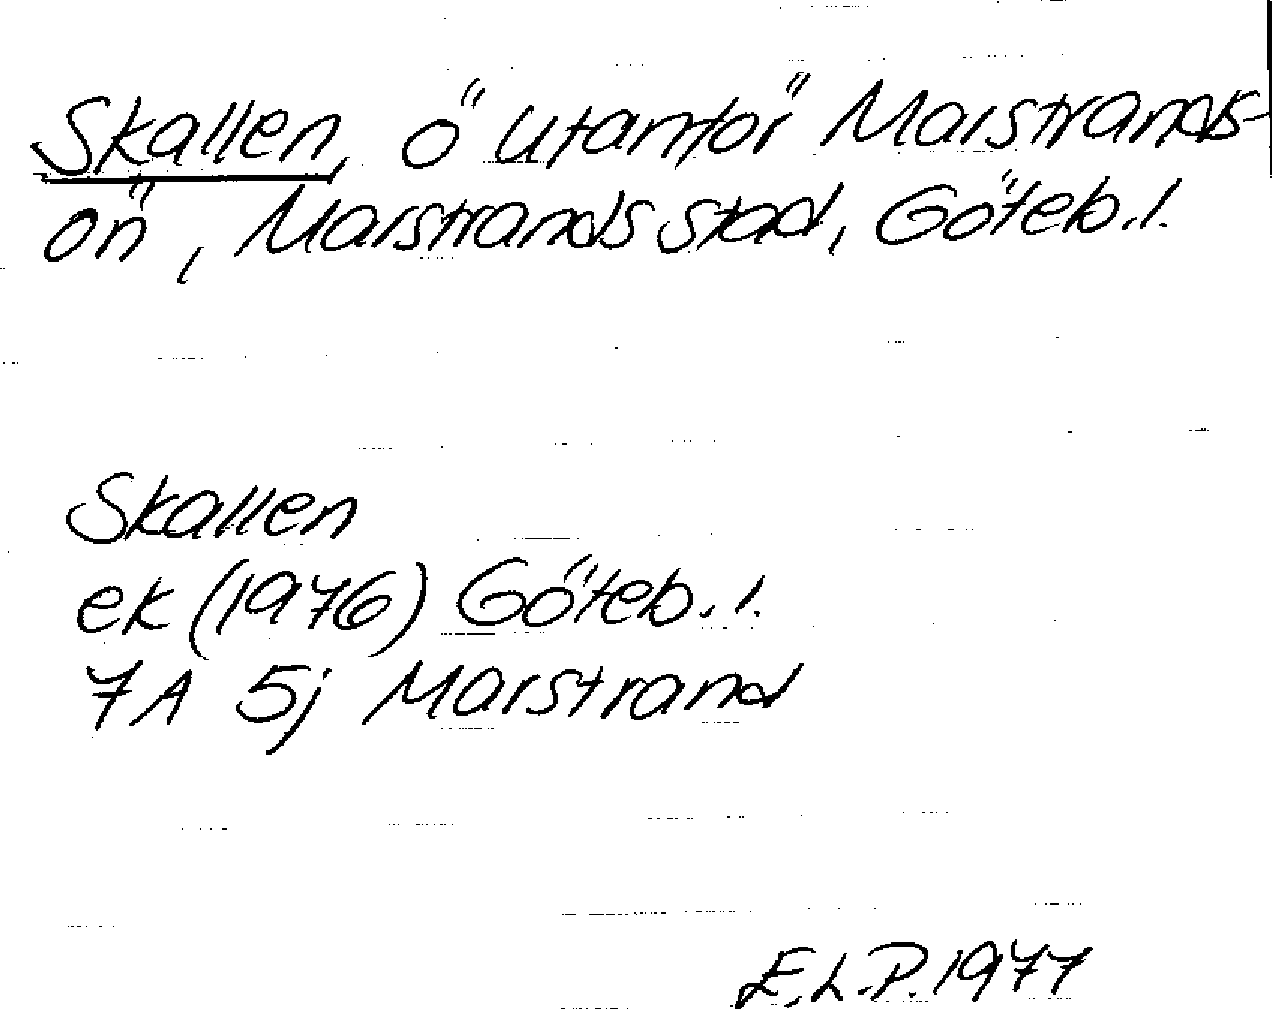 Skallen, ö utanför Marstrands-
ön, Marstrands stad, Göteb. l.
Skallen
ek (1976) Göteb. l.
7A 5j Marstrand
E.L.P. 1977